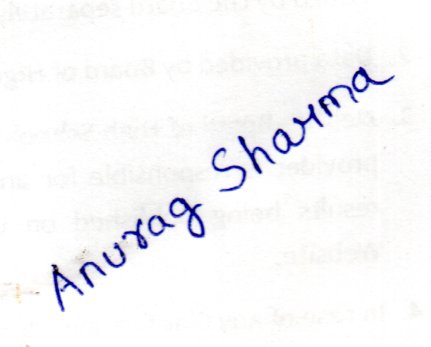 Anurag Sharma